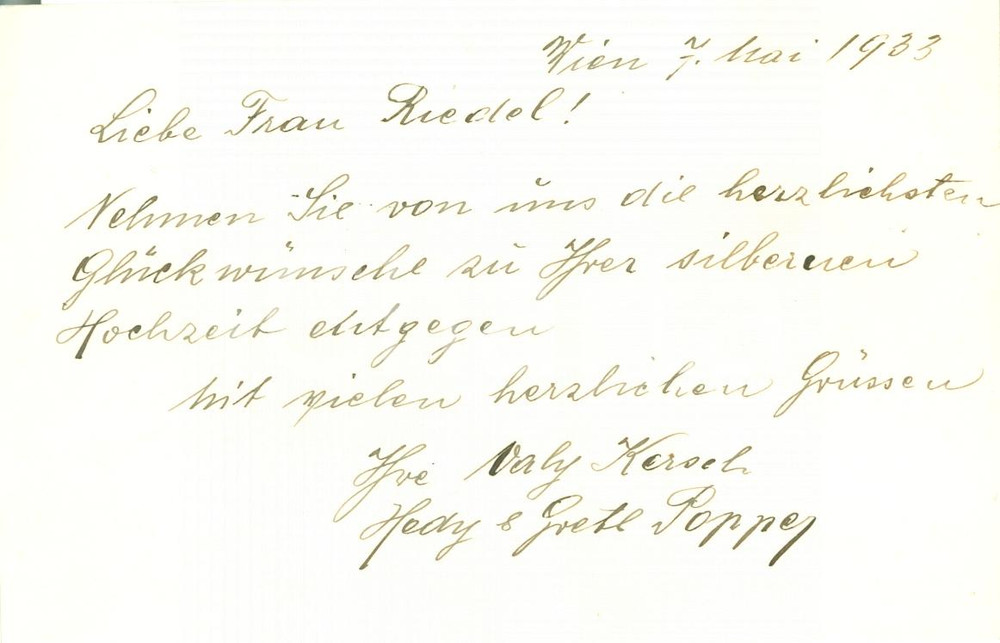 Wien 7. Mai 1933
Liebe Frau Riedel!
Nehmen Sie von uns die herzlichsten
Glückwünsche zu Ihrer silbernen
Hochzeit entgegen
Mit vielen herzlichen Grüssen
Ihre Valy Kersch
Hedy & Gretl Popper